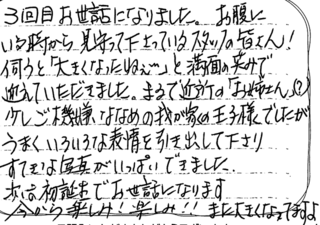 3回目お世話になりました。お腹に
いる時から、見守って下さっているスタッフの皆さん！
伺うと「大きくなったねぇ〜」と満面の笑みで
迎えていただきました。まるで近所の「お姉さん」(?)
ケレご機嫌ななめの我が家の王子様でしたが
うまくいろいろな表情を引き出して下さり
すてきな写真がいっぱいできました。
次は初誕生でお世話になります
今から楽しみ！楽しみ!! また大きくなってますよ